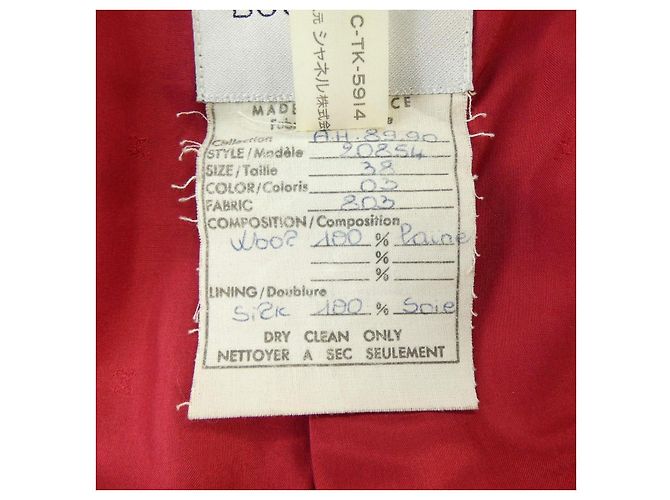 C-TK-5914
元 シャネル株式会
MADE CE
Collection A.H.89.90
STYLE/Modèle 20254
SIZE/Taille 38
COLOR/Coloris 03
FABRIC 803
COMPOSITION/Composition
Wool 100 % Laine
%
%
LINING/Doublure
Silk 100 % Soie
DRY CLEAN ONLY
NETTOYER A SEC SEULEMENT